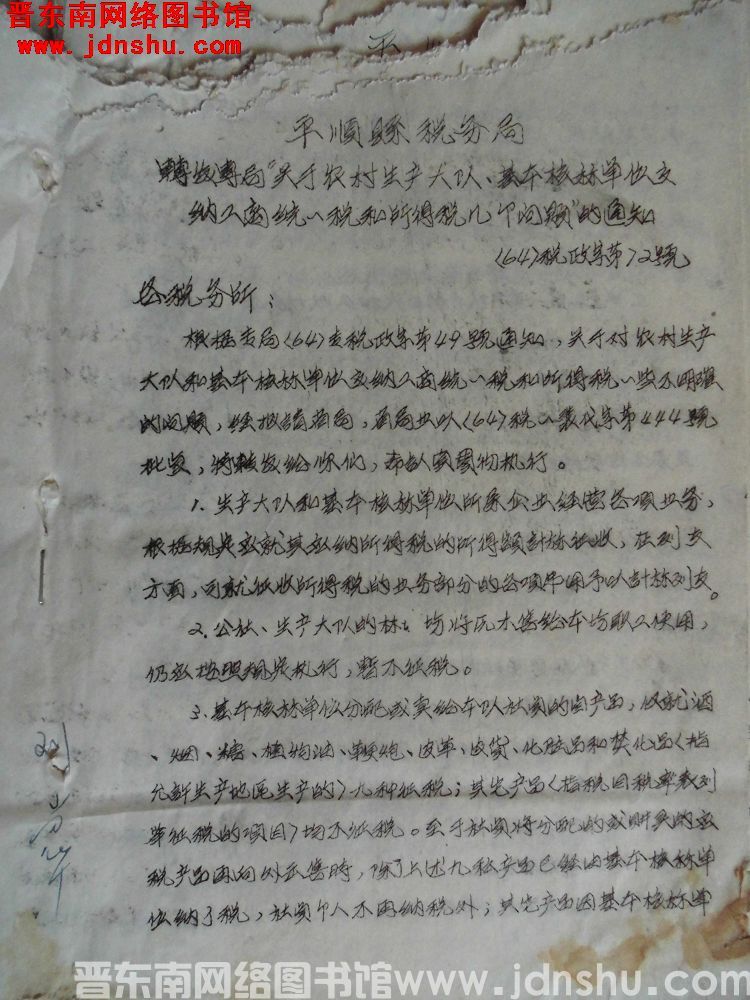 晋东南网络图书馆
www.jdnshu.com
平
平順縣税务局
轉发專局“关于农村生产大队、基本核祘单位交
纳工商统一税和所得税几个问题”的通知
〈64〉税政字第72號
各税务所：
根据专局〈64〉专税政字第49號通知，关于对农村生产
大队和基本核祘单位交纳工商统一税和所得税一些不明確
的问题，经报請省局，省局业以〈64〉税一裴代字第444號
批复，将轉发给你们，希认真貫彻执行。
1.生产大队和基本核祘单位所系企业经营各項业务，
根据规定应就其应纳所得税的所得額計祘征收，在列支
方面，可就征收所得税的业务部分的各項費用予以計祘列支。
2.公社、生产大队的林场将原木售给本场职工使用，
仍应按照规定执行，暂不征税。
3.基本核祘单位分配或卖给本队社員的自产品，仅就酒
、烟、糖、植物油、鞭炮、皮革、皮货、化粧品和焚化品〈指
允許生产地区生产的〉九种征税；其它产品〈指税目税率表列
举征税的項目〉均不征税。至于社員将分配的或购买的应
税产品再向外出售時，除了上述九种产品已经由基本核祘单
位纳了税，社員个人不再纳税外；其它产品因基本核祘单
晋东南网络图书馆www.jdnshu.com